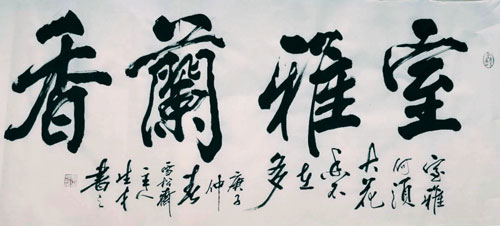 室雅蘭香
室雅
何須
大花
香不
在
多
庚子
仲
春
雪松齋
主人
書之